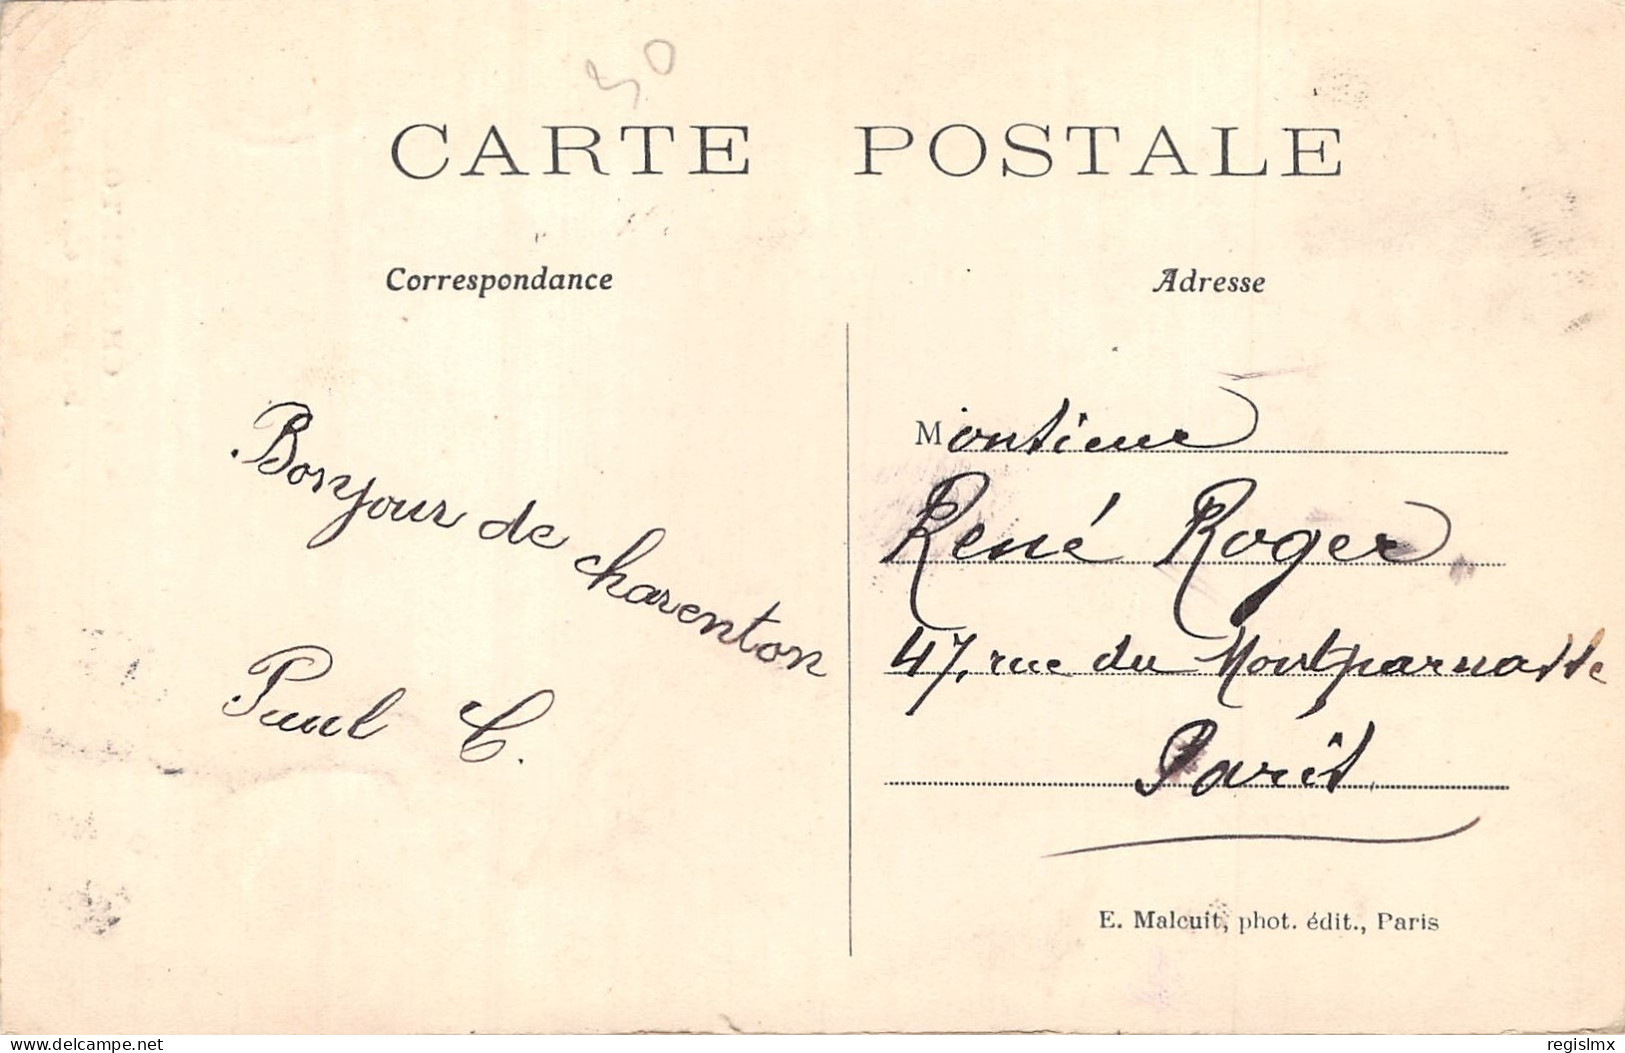 50
CARTE POSTALE
Correspondance
Adresse
Bonjour de charenton
Paul C.
Monsieur
René Roger
47, rue du Montparnasse
Paris
E. Malcuit, phot. édit., Paris
www.delcampe.net
regislmx